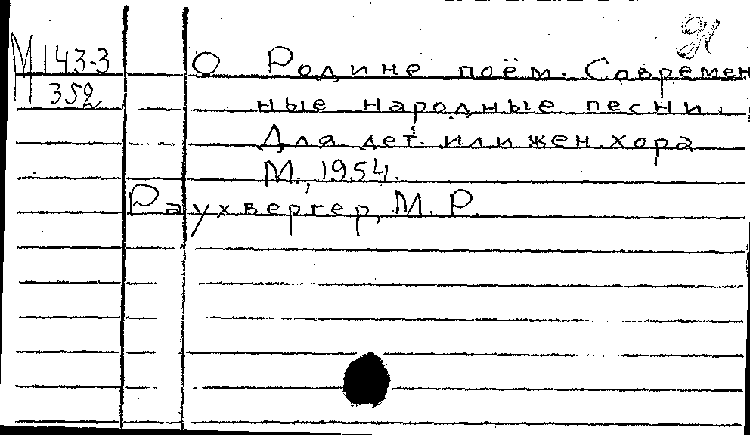 М 143-3 О Родине поём. Современ
352 ные народные песни.
Для дет. или жен. хора
М., 1954.
Раухвергер, М. Р.